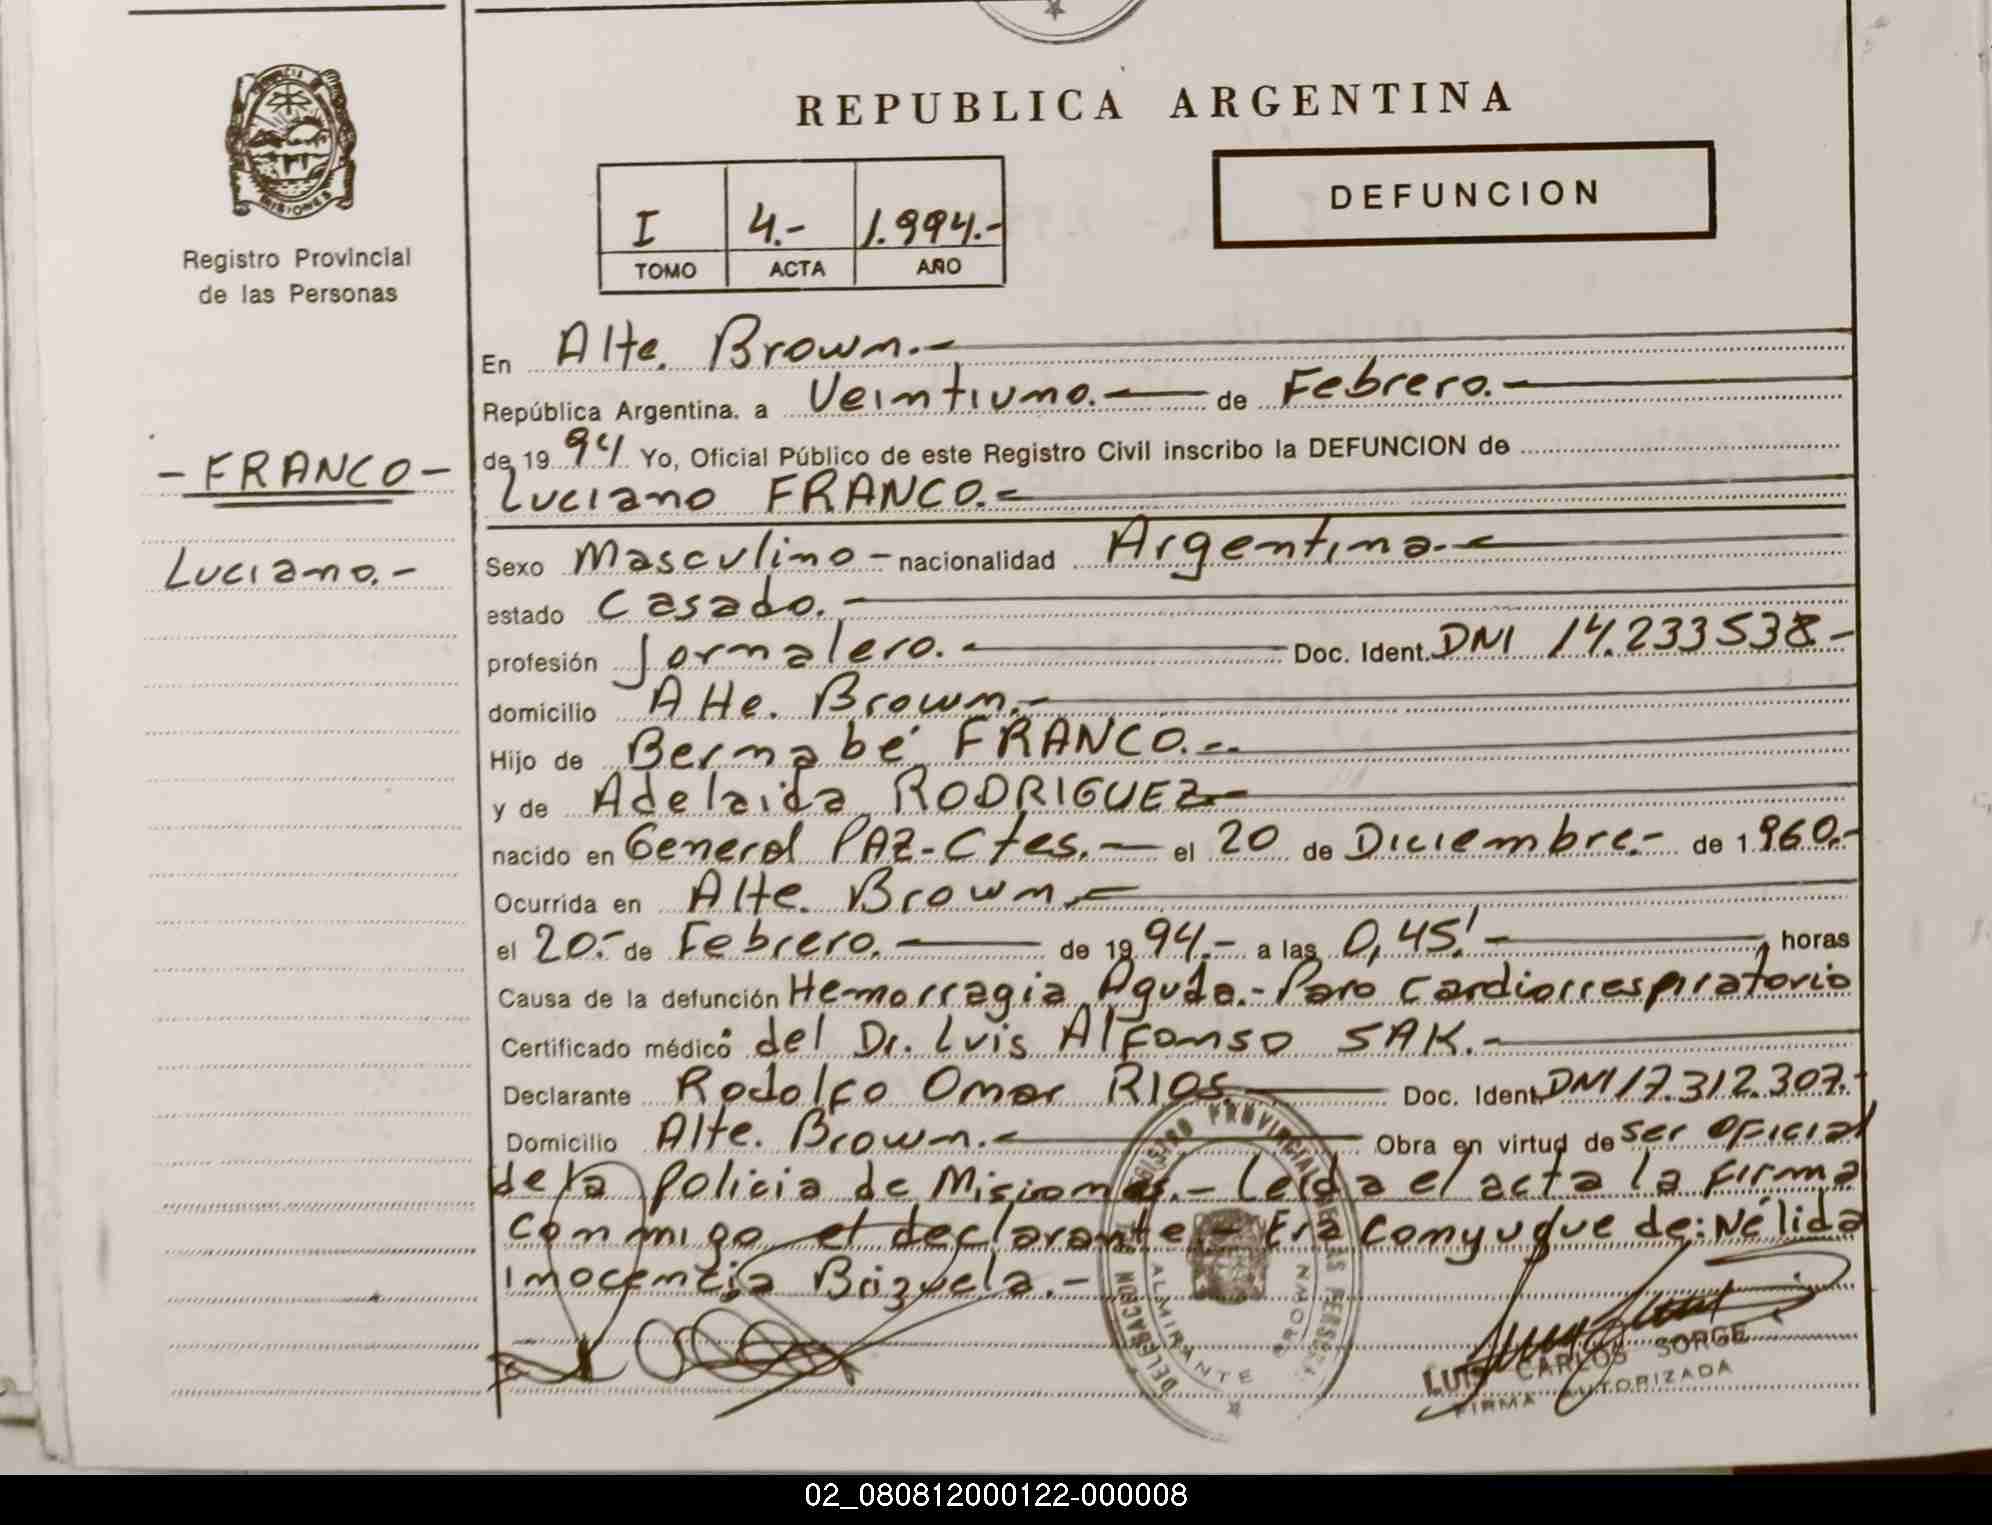 PROVINCIA
MISIONES
Registro Provincial
de las Personas
- FRANCO -
Luciano.-
REPUBLICA ARGENTINA
I 4.- 1.994.-
TOMO ACTA AÑO
DEFUNCION
En Alte. Brown.-
República Argentina. a Veintiuno.- de Febrero.-
de 19 94 Yo, Oficial Público de este Registro Civil inscribo la DEFUNCION de
Luciano FRANCO.-
Sexo Masculino - nacionalidad Argentina.-
estado Casado.-
profesión Jornalero.- Doc. Ident. DNI 14.233538.-
domicilio Alte. Brown.-
Hijo de Bernabé FRANCO.-.
y de Adelaida RODRIGUEZ.-
nacido en General PAZ-Ctes.- el 20 de Diciembre.- de 1.960.-
Ocurrida en Alte. Brown.-
el 20.- de Febrero.- de 19 94.- a las 0,45!- horas
Causa de la defunción Hemorragia Aguda.- Paro Cardiorrespiratorio
Certificado médico del Dr. Luis Alfonso SAK.-
Declarante Rodolfo Omar RIOS. Doc. Ident. DNI 17.312.307.-
Domicilio Alte. Brown.- Obra en virtud de ser oficial
de la Policia de Misiones.- Leida el acta la firma
conmigo el declarante.- Era Conyugue de: Nélida
Inocencia Brizuela.-
REGISTRO PROVINCIAL DE LAS PERSONAS
DELEGACION
ALMIRANTE BROWN
LUIS CARLOS SORGE
FIRMA AUTORIZADA
02_080812000122-000008